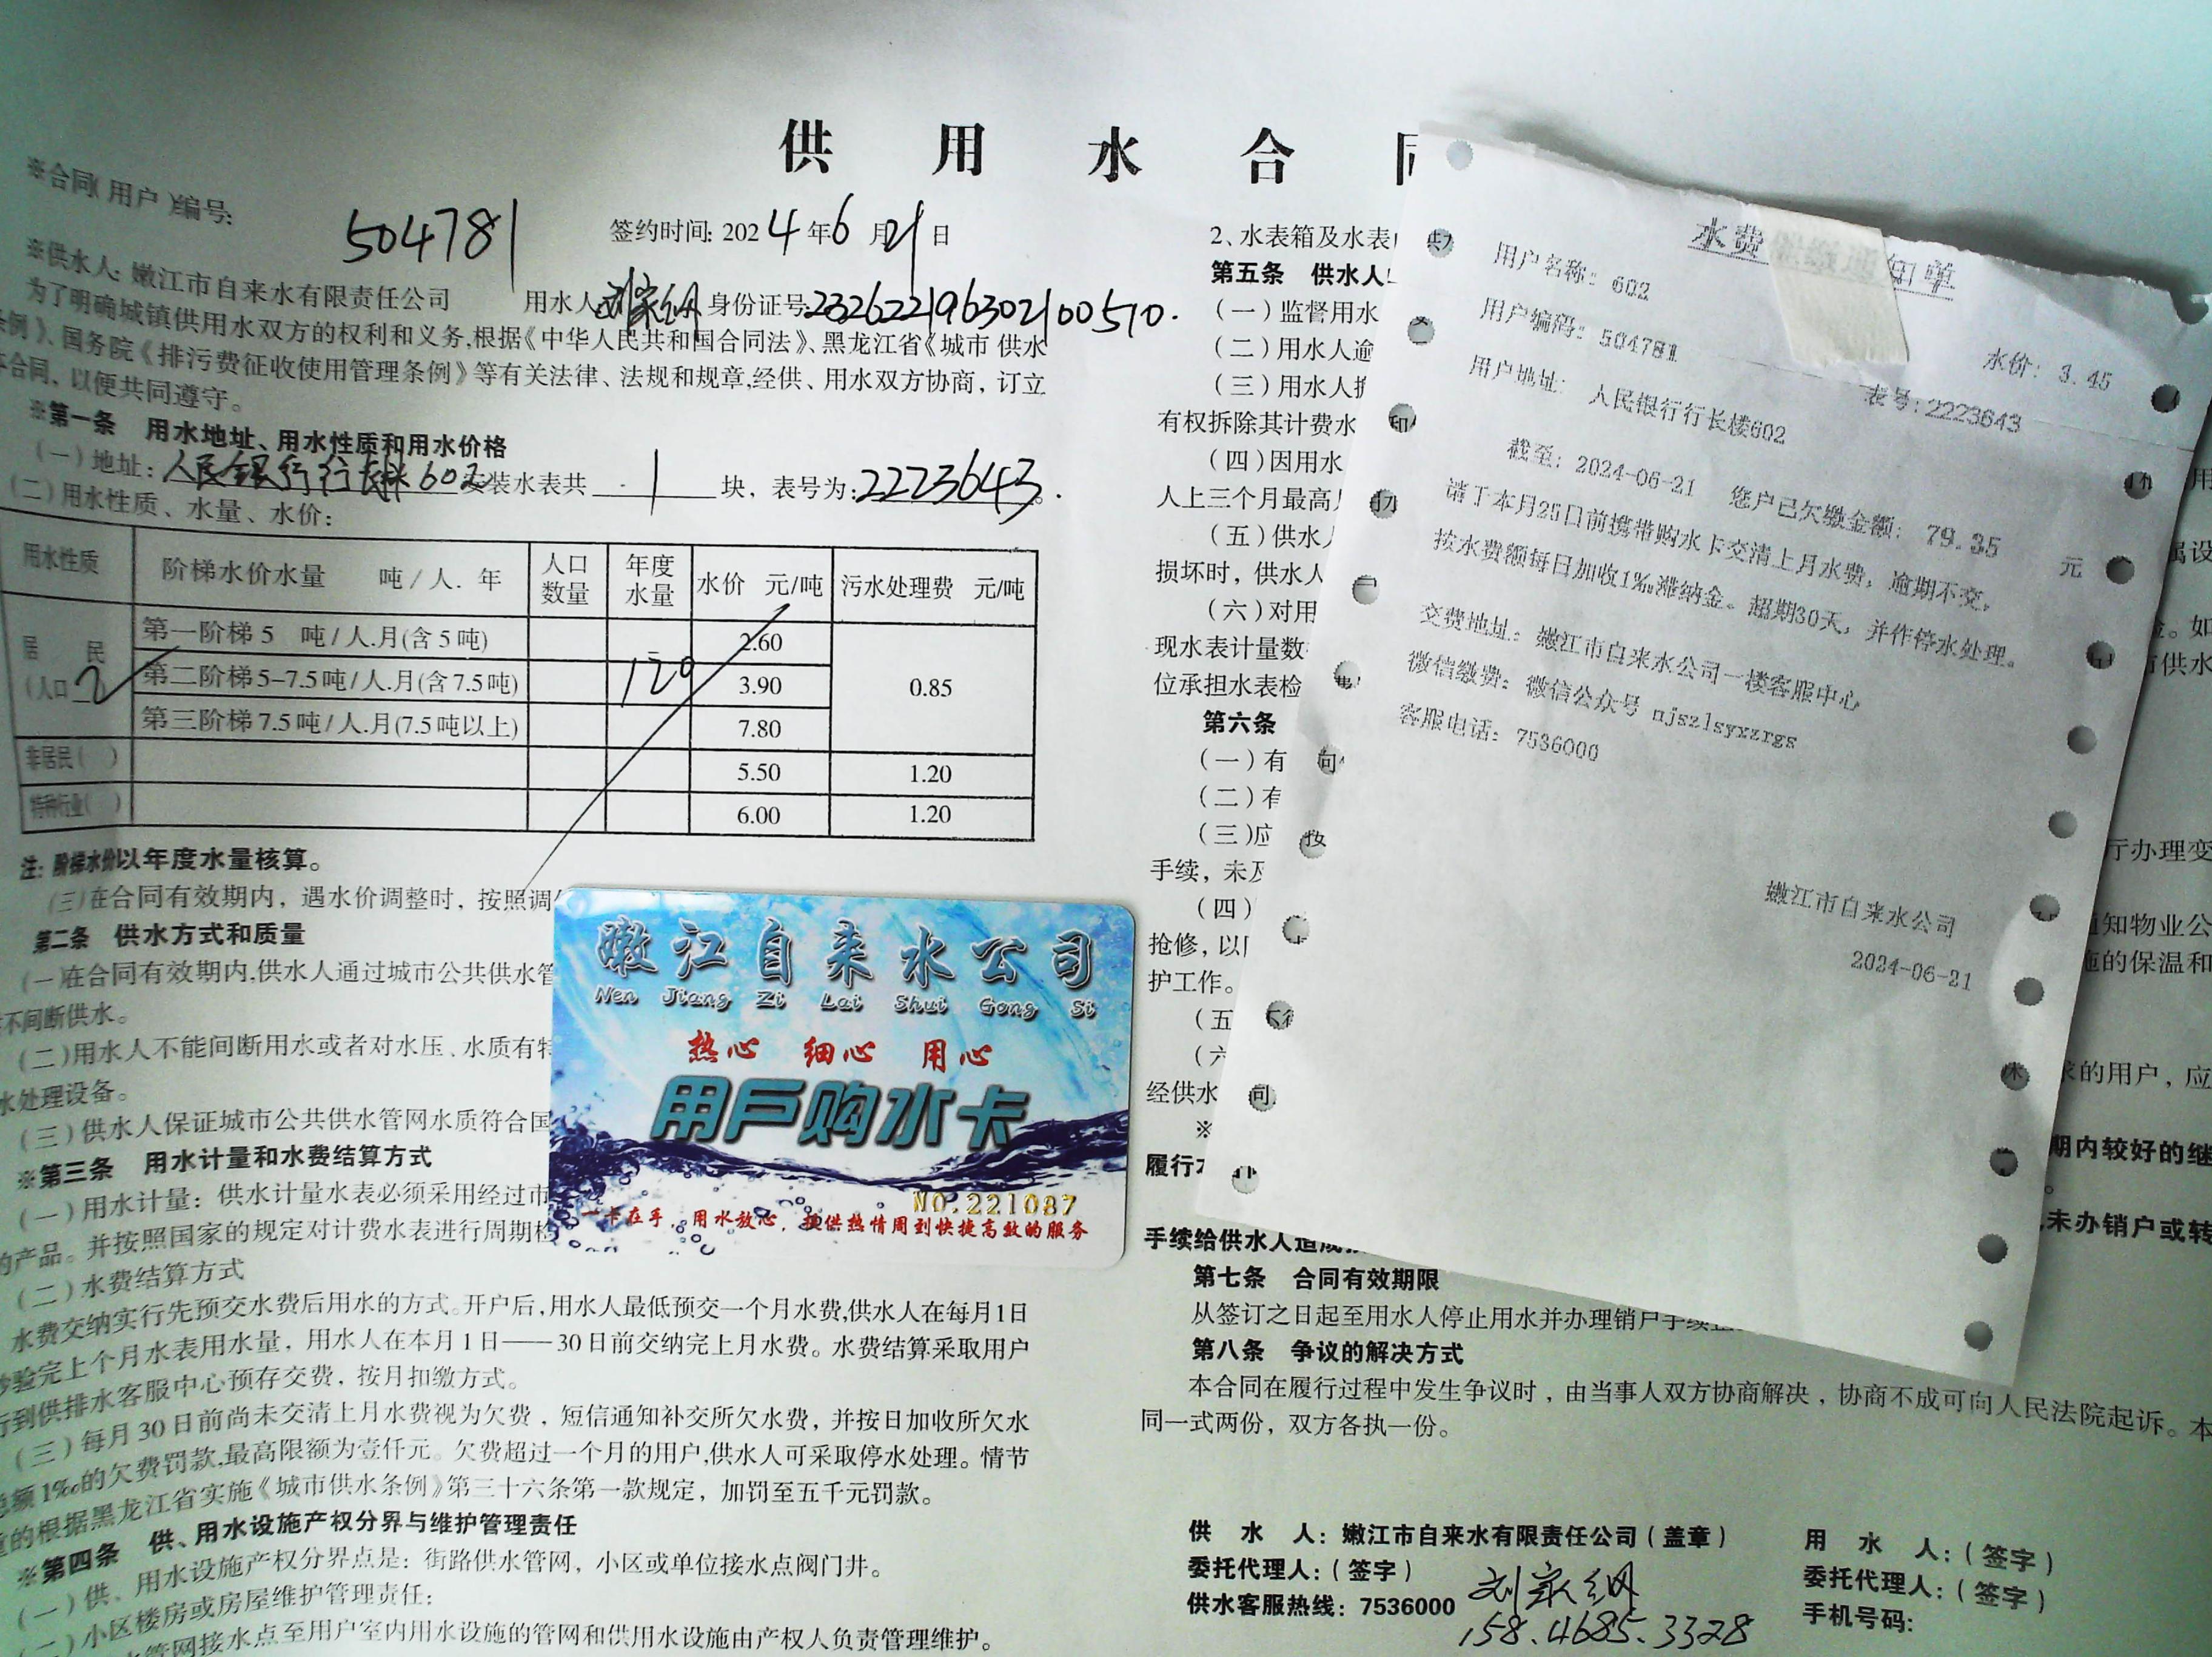 供用水合同
※合同(用户)编号:
504781
签约时间: 2024年6月21日
※供水人: 嫩江市自来水有限责任公司 用水人 刘家纲 身份证号: 232622196302100510.
为了明确城镇供用水双方的权利和义务,根据《中华人民共和国合同法》、黑龙江省《城市 供水
条例》、国务院《排污费征收使用管理条例》等有关法律、法规和规章,经供、用水双方协商，订立
合同，以便共同遵守。
※第一条 用水地址、用水性质和用水价格
(一)地址: 人民银行行长楼602 安装水表共 1 块，表号为: 2223643.
(二)用水性质、水量、水价:
用水性质 阶梯水价水量 吨/人.年 人口数量 年度水量 水价 元/吨 污水处理费 元/吨
居民(人口 2 第一阶梯5 吨/人.月(含5吨) 2.60
第二阶梯5-7.5吨/人.月(含7.5吨) 120 3.90 0.85
第三阶梯7.5吨/人.月(7.5吨以上) 7.80
非居民( ) 5.50 1.20
特种行业( ) 6.00 1.20
注: 阶梯水价以年度水量核算。
(三)在合同有效期内，遇水价调整时，按照调
第二条 供水方式和质量
(一)在合同有效期内,供水人通过城市公共供水管
不间断供水。
(二)用水人不能间断用水或者对水压、水质有特
水处理设备。
(三)供水人保证城市公共供水管网水质符合国
※第三条 用水计量和水费结算方式
(一)用水计量: 供水计量水表必须采用经过市
的产品。并按照国家的规定对计费水表进行周期检
(二)水费结算方式
水费交纳实行先预交水费后用水的方式。开户后,用水人最低预交一个月水费,供水人在每月1日
抄验完上个月水表用水量，用水人在本月1日——30日前交纳完上月水费。水费结算采取用户
行到供排水客服中心预存交费，按月扣缴方式。
(三)每月30日前尚未交清上月水费视为欠费，短信通知补交所欠水费，并按日加收所欠水
总额1‰的欠费罚款,最高限额为壹仟元。欠费超过一个月的用户,供水人可采取停水处理。情节
重的根据黑龙江省实施《城市供水条例》第三十六条第一款规定，加罚至五千元罚款。
※第四条 供、用水设施产权分界与维护管理责任
(一)供、用水设施产权分界点是: 街路供水管网，小区或单位接水点阀门井。
(二)小区楼房或房屋维护管理责任:
水管网接水点至用户室内用水设施的管网和供用水设施由产权人负责管理维护。
嫩江自来水公司
Nen Jiang Zi Lai Shui Gong Si
热心 细心 用心
用户购水卡
NO.221087
一卡在手，用水放心，提供热情周到快捷高效的服务
2、水表箱及水表
第五条 供水人
(一)监督用水
(二)用水人逾
(三)用水人
有权拆除其计费水
(四)因用水
人上三个月最高
(五)供水人
损坏时，供水人
(六)对用
现水表计量数
位承担水表检
第六条
(一)有
(二)有
(三)应
手续，未及
(四)
抢修，以
护工作。
(五
(六
经供水
※
履行
手续给供水人造成
第七条 合同有效期限
从签订之日起至用水人停止用水并办理销户手续
第八条 争议的解决方式
本合同在履行过程中发生争议时，由当事人双方协商解决，协商不成可向人民法院起诉。本
同一式两份，双方各执一份。
供 水 人: 嫩江市自来水有限责任公司(盖章)
委托代理人:(签字)
供水客服热线: 7536000
刘家纲
158.4685.3328
用 水 人:(签字)
委托代理人:(签字)
手机号码:
水费 知单
用户名称: 602
水价: 3.45
用户编码: 504781
表号:2223643
用户地址: 人民银行行长楼602
截至: 2024-06-21 您户已欠缴金额: 79.35 元
请于本月25日前携带购水卡交清上月水费，逾期不交，
按水费额每日加收1‰滞纳金。超期30天，并作停水处理。
交费地址: 嫩江市自来水公司一楼客服中心
微信缴费: 微信公众号 njszlsyxzrgs
客服电话: 7536000
嫩江市自来水公司
2024-06-21
用
属设
。如
供水
厅办理变
通知物业公
施的保温和
求的用户，应
期内较好的继
。
未办销户或转